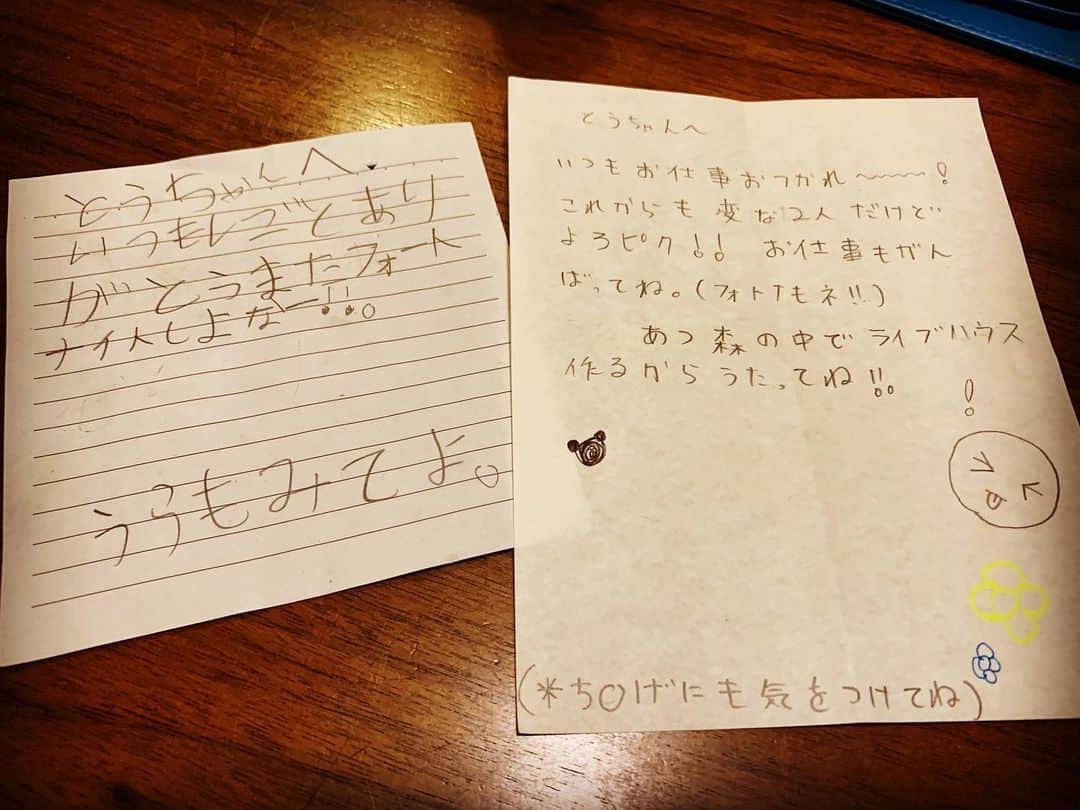 とうちゃんへ
いつもしごとあり
がとうまたフォート
ナイトしよなー!!。
うらもみてよ。
とうちゃんへ
いつもお仕事おつかれ〜〜〜!
これからも変な2人だけど
よろピク!! お仕事もがん
ばってね。(フォトナもネ!!)
あつ森の中でライブハウス
作るからうたってね!!
!
(*ち○げにも気をつけてね)